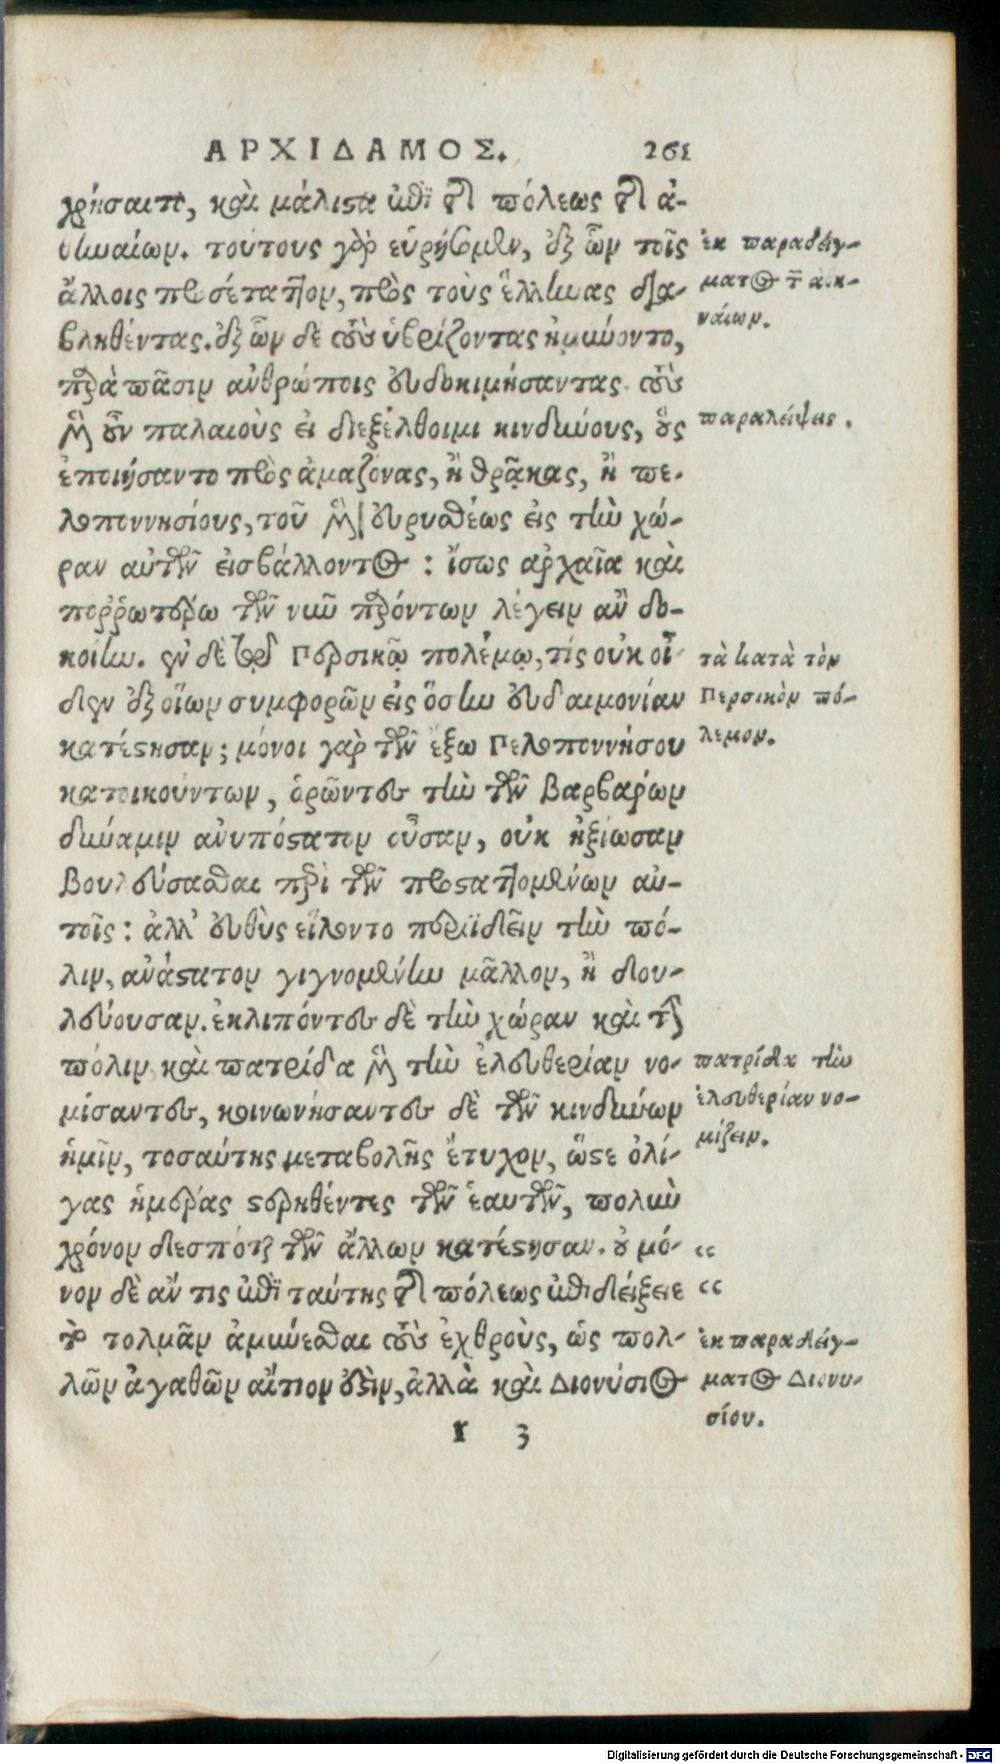 ΑΡΧΙΔΑΜΟΣ. 261
χρήσαιτο, καὶ μάλιστα ἐπὶ τῆς πόλεως τῆς ἀ-
θηναίων. τούτους γὰρ εὑρήσομεν, ἐξ ὧν τοῖς
ἄλλοις προσέταττον, πρὸς τοὺς ἕλληνας δια-
βληθέντας. ἐξ ὧν δὲ τοὺς ὑβρίζοντας ἠμύνοντο,
παρὰ πᾶσιν ἀνθρώποις εὐδοκιμήσαντας. τοὺς
μὲν οὖν παλαιοὺς εἰ διεξέλθοιμι κινδύνους, οὓς
ἐποιήσαντο πρὸς ἀμαζόνας, ἢ θρᾷκας, ἢ πε-
λοποννησίους, τοῦ μετ' εὐρυσθέως εἰς τὴν χώ-
ραν αὐτῶν εἰσβάλλοντος: ἴσως ἀρχαῖα καὶ
πορῥωτέρω τῶν νῦν παρόντων λέγειν ἂν δο-
κοίην. ἐν δὲ τῷ Περσικῷ πολέμῳ, τίς οὐκ οἶ-
δεν ἐξ οἵων συμφορῶν εἰς ὅσην εὐδαιμονίαν
κατέστησαν; μόνοι γὰρ τῶν ἔξω Πελοποννήσου
κατοικούντων, ὁρῶντες τὴν τῶν βαρβάρων
δύναμιν ἀνυπόστατον οὖσαν, οὐκ ἠξίωσαν
βουλεύσασθαι περὶ τῶν προσταττομένων αὐ-
τοῖς: ἀλλ' εὐθὺς εἵλοντο περιϊδεῖν τὴν πό-
λιν, ἀνάστατον γιγνομένην μᾶλλον, ἢ δου-
λεύουσαν. ἐκλιπόντες δὲ τὴν χώραν καὶ τὴν
πόλιν καὶ πατρίδα μὲν τὴν ἐλευθερίαν νο-
μίσαντες, κοινωνήσαντες δὲ τῶν κινδύνων
ἡμῖν, τοσαύτης μεταβολῆς ἔτυχον, ὥστε ὀλί-
γας ἡμέρας στερηθέντες τῶν ἑαυτῶν, πολὺν
χρόνον δεσπόται τῶν ἄλλων κατέστησαν. οὐ μό-
νον δὲ ἄν τις ἐπὶ ταύτης τῆς πόλεως ἐπιδείξειε
τὸ τολμᾶν ἀμύνεσθαι τοὺς ἐχθροὺς, ὡς πολ-
λῶν ἀγαθῶν αἴτιον ἐστὶν, ἀλλὰ καὶ Διονύσιος
I 3
ἐκ παραδείγ-
ματος τῶν ἀθη-
ναίων.
παραλείψεις.
τὰ κατὰ τὸν
Περσικὸν πό-
λεμον.
πατρίδα τὴν
ἐλευθερίαν νο-
μίζειν.
“
“
ἐκ παραδείγ-
ματος Διονυ-
σίου.
Digitalisierung gefördert durch die Deutsche Forschungsgemeinschaft - DFG